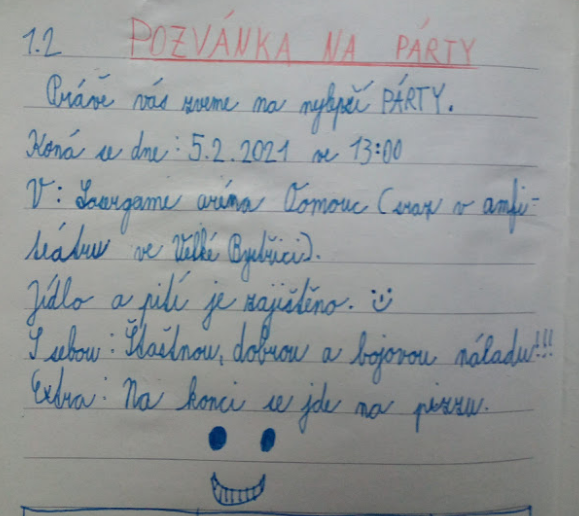 1.2 POZVÁNKA NA PÁRTY
Právě vás zveme na nylepší PÁRTY.
Koná se dne: 5.2.2021 ve 13:00
V: Lasergame aréna Olomouc (sraz v amfi-
teátru ve Velké Bystřici).
Jídlo a pití je zajištěno. :)
S sebou: Šťastnou, dobrou a bojovou náladu!!!
Extra: Na konci se jde na pizzu.